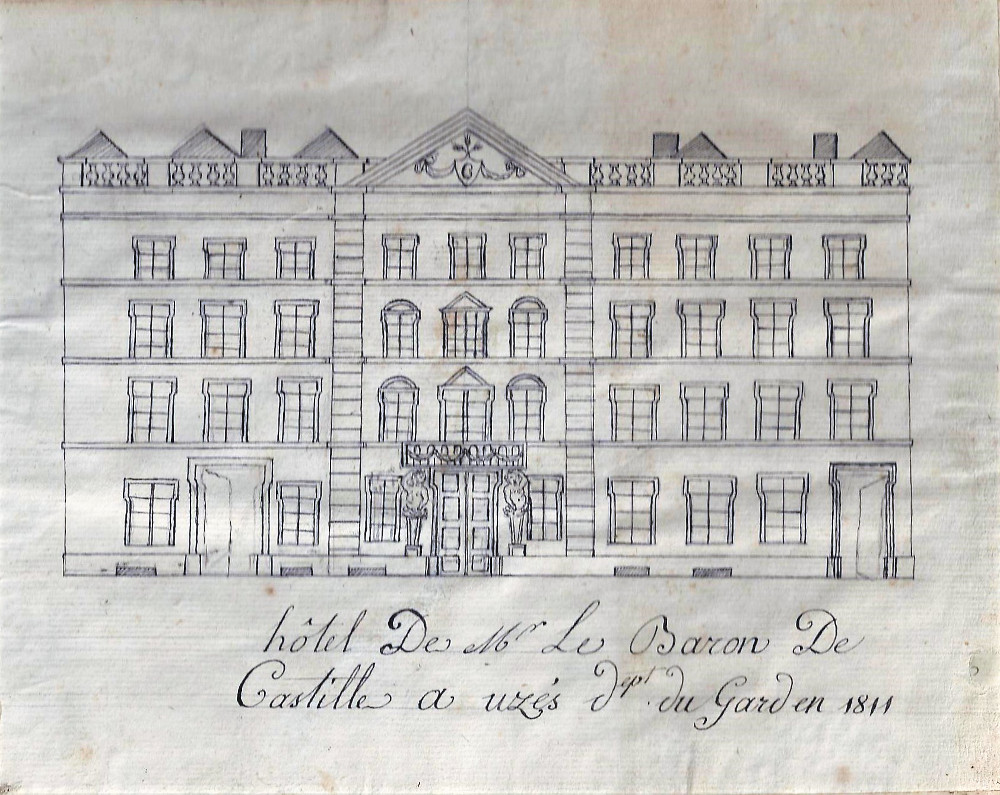 C
hôtel De Mr Le Baron De
Castille a uzés dept. du Gard en 1811